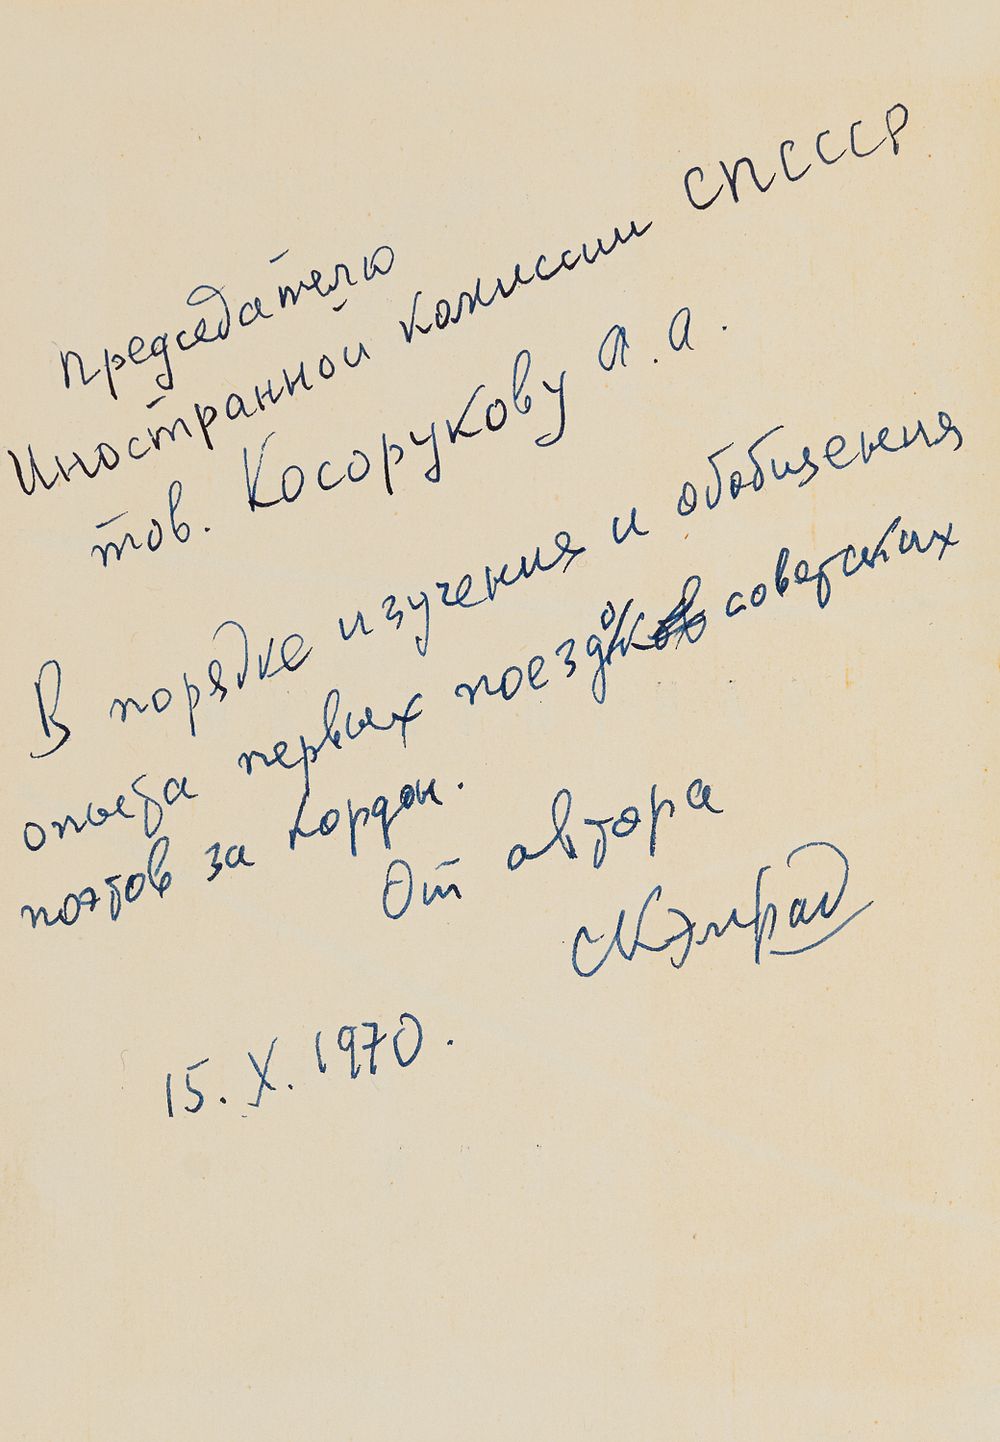 Председателю
Иностранной комиссии СП СССР
тов. Косорукову А. А.
В порядке изучения и обобщения
опыта первых поездок советских
поэтов за кордон.
От автора
СКэмрад
15. X. 1970.